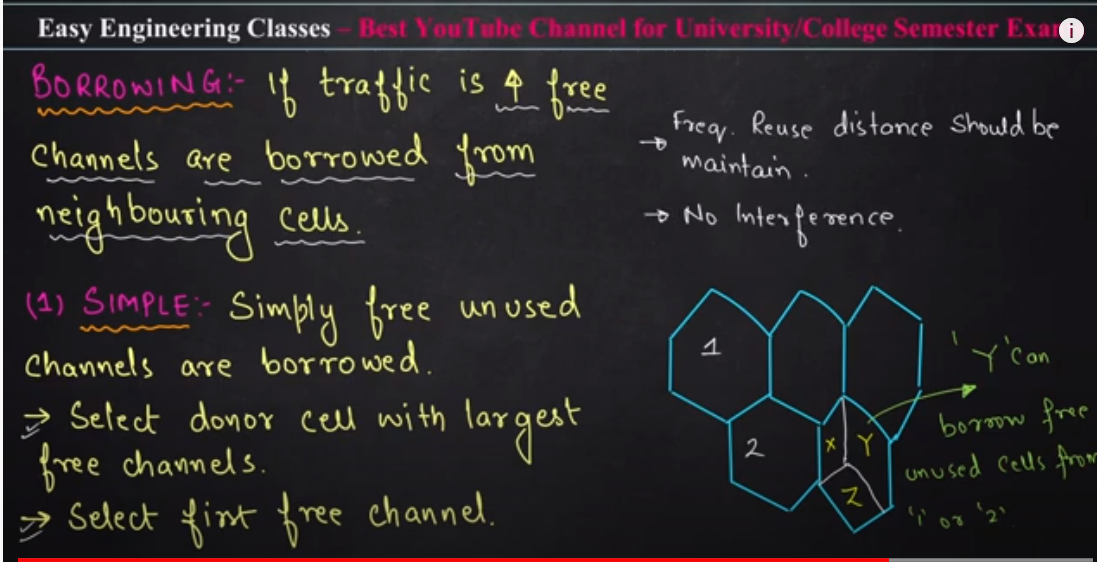 Easy Engineering Classes – Best YouTube Channel for University/College Semester Exam
i
BORROWING:- If traffic is ↑ free
channels are borrowed from
neighbouring cells.
→ Freq. Reuse distance should be
maintain.
→ No Interference.
(1) SIMPLE:- Simply free unused
channels are borrowed.
→ Select donor cell with largest
free channels.
→ Select first free channel.
1
2
X
Y
Z
'Y' can
borrow free
unused cells from
'1' or '2'.